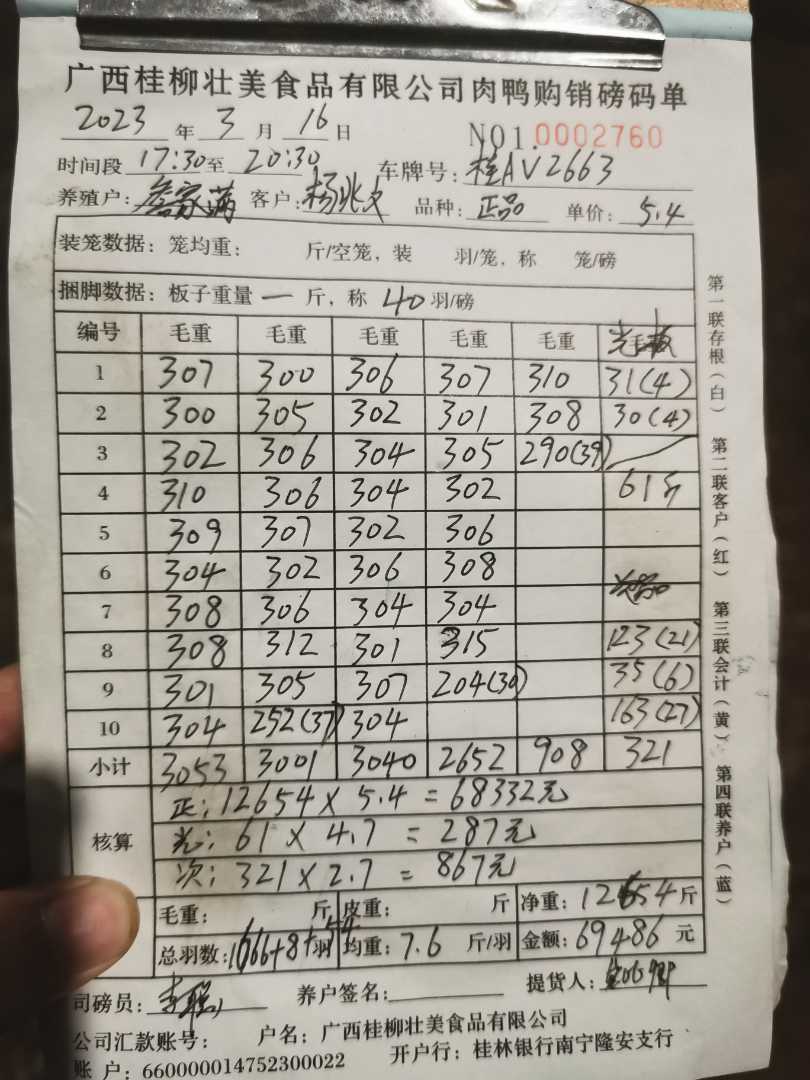 广西桂柳壮美食品有限公司肉鸭购销磅码单
2023 年 3 月 16 日 NO1.0002760
时间段 17:30 至 20:30 车牌号: 桂AV2663
养殖户: 家满 客户: 杨兆文 品种: 正品 单价: 5.4
装笼数据: 笼均重: 斤/空笼, 装 羽/笼, 称 笼/磅
捆脚数据: 板子重量 一 斤, 称 40 羽/磅
编号 毛重 毛重 毛重 毛重 毛重
1 307 300 306 307 310 31(4)
2 300 305 302 301 308 30(4)
3 302 306 304 305 290(39)
4 310 306 304 302 61斤
5 309 307 302 306
6 304 302 306 308
7 308 306 304 304 次品
8 308 312 301 315 123(21)
9 301 305 307 204(30) 35(6)
10 304 252(37) 304 163(27)
小计 3053 3001 3040 2652 908 321
核算
正: 12654 × 5.4 = 68332元
光: 61 × 4.7 = 287元
次: 321 × 2.7 = 867元
毛重: 斤 皮重: 斤 净重: 12654 斤
总羽数: 1666+8+54 羽 均重: 7.6 斤/羽 金额: 69486 元
司磅员: 养户签名: 提货人:
公司汇款账号: 户名: 广西桂柳壮美食品有限公司
账 户: 660000014752300022 开户行: 桂林银行南宁隆安支行
第一联存根(白) 第二联客户(红) 第三联会计(黄) 第四联养户(蓝)